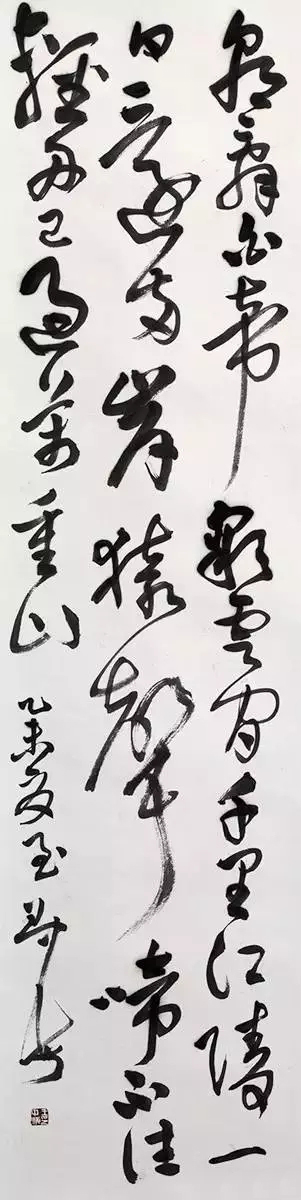 朝辭白帝彩雲間千里江陵一
日還兩岸猿聲啼不住
輕舟已過萬重山
乙未夏至